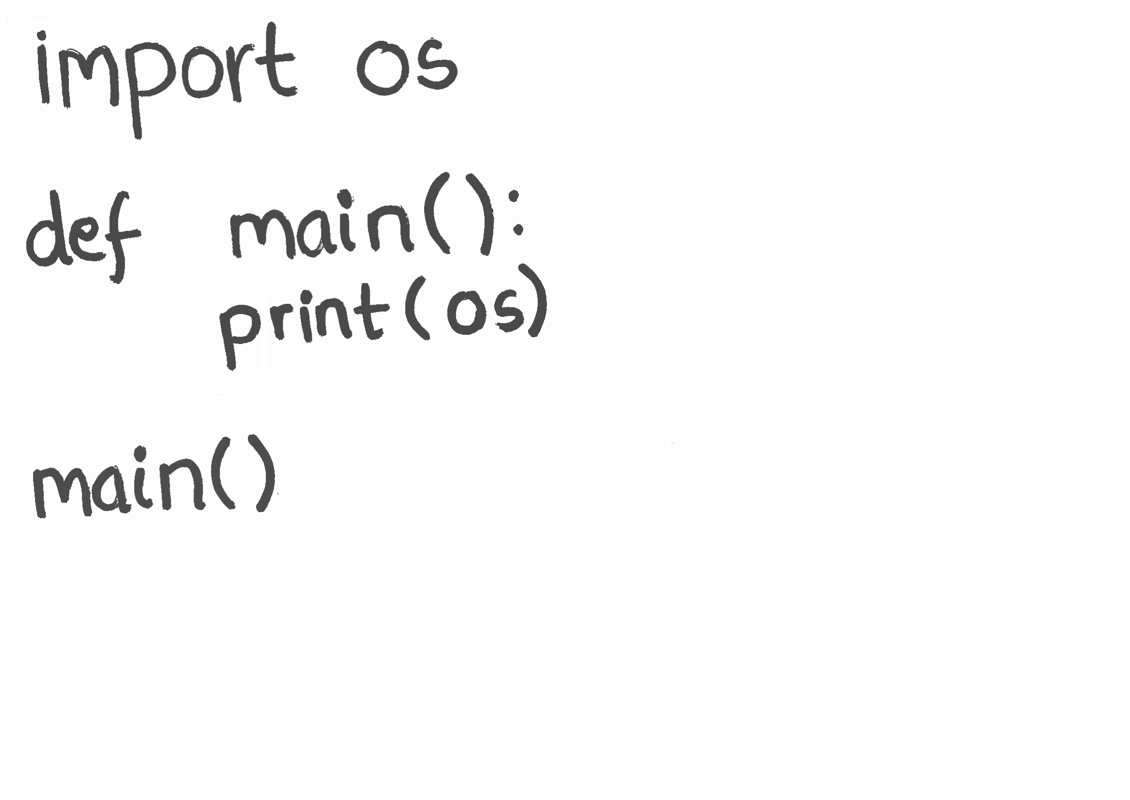 import os
def main():
print(os)
main()